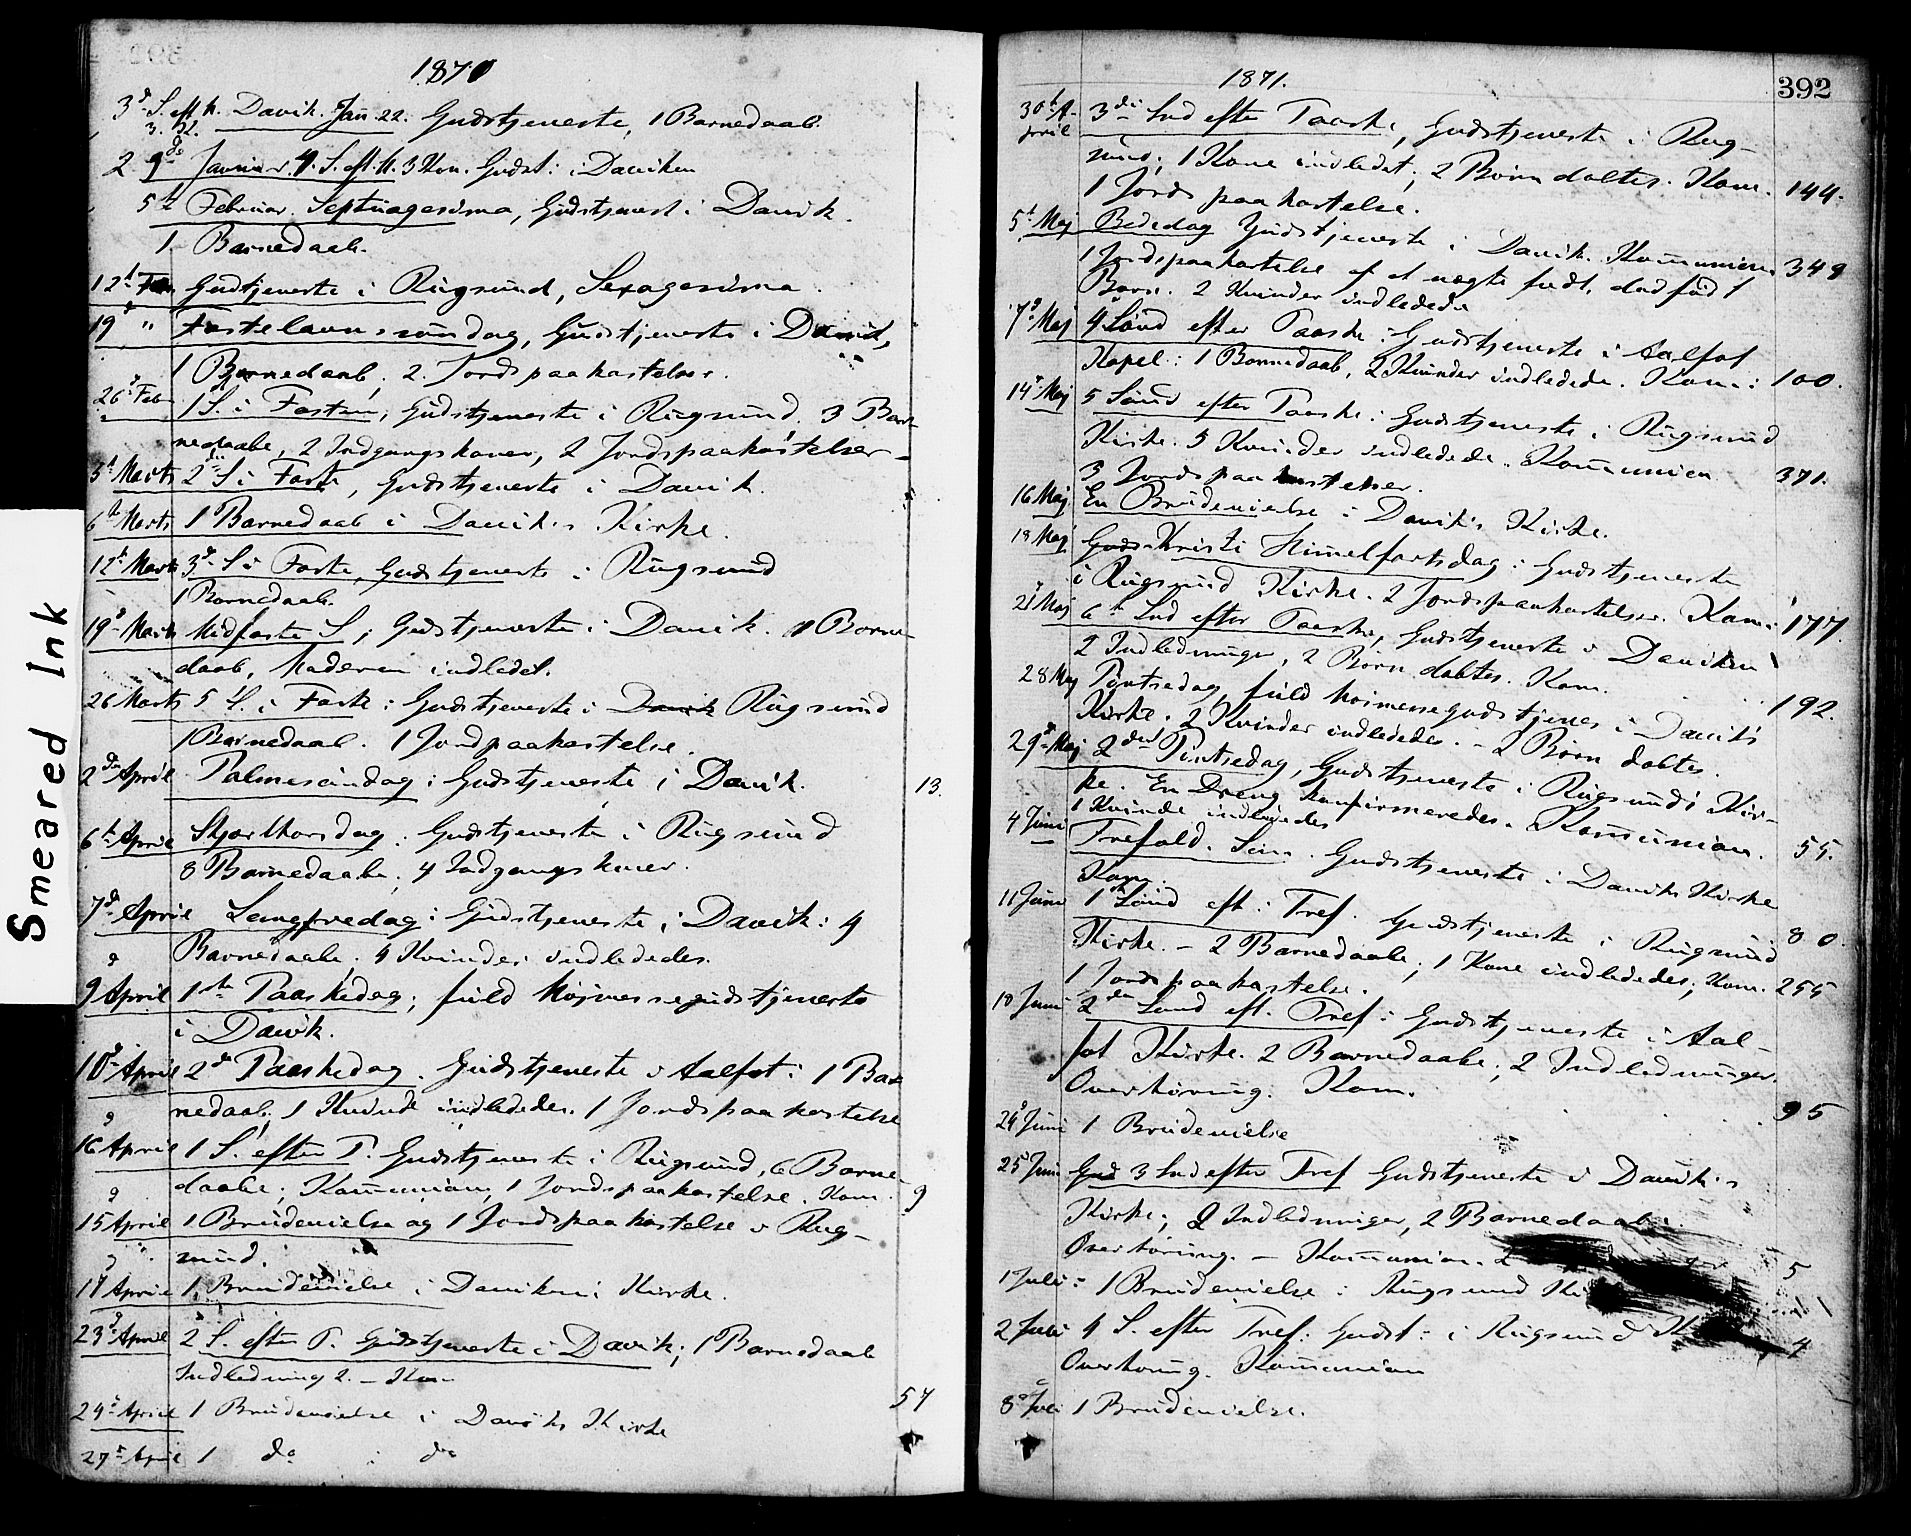 1870
3d S. eft h. Davik. Jan 22. Gudstjeneste, 1 Barnedaab.
3. K.
29de Januar. 4. S. eft. h. 3 Kon. Gudst: i Daviken
5te Februar Septuagesima, Gudstjenest i Davik.
1 Barnedaab.
12t Feb Gudtjeneste i Rugsund, Sexagesima.
19d " Fastelavnssøndag, Gudstjeneste i Davik,
1 Barnedaab, 2. Jordspaakastelser.
26d Febr 1 S. i Fasten, Gudstjeneste i Rugsund. 3 Bar-
nedaabe, 2 Indgangskoner, 2 Jordspaakastelser
5t Marts 2 S i Faste, Gudstjeneste i Davik.
6te Marts 1 Barnedaab i Daviks Kirke.
12t Marts 3d S i Faste, Gudstjeneste i Rugsund
1 Barnedaab.
19d Marts Midfaste S; Gudstjeneste i Davik. 1 Barne-
daab, Moderen indledet.
26 Marts 5 S. i Faste: Gudstjeneste i Davik Rugsund
1 Barnedaab. 1 Jordpaakastelse.
2den April Palmesøndag: Gudstjeneste i Davik. 13.
6te April Skjærthorsdag: Gudstjeneste i Rugsund
8 Barnedaabe, 4 Indgangskoner.
7de April Langfredag: Gudstjeneste i Davik: 4
Barnedaabe. 4 Kvinder indlededes.
9 April 1ste Paaskedag; fuld Høimessegudstjeneste
i Davik.
10d April 2d Paaskedag. Gudstjeneste i Aalfot: 1 Bar
nedaab; 1 Kvinde indlededes. 1 Jordspaakastelse
16 April 1 S. efter P. Gudstjeneste i Rugsund, 6 Barne-
daabe; Kommunion, 1 Jordspaakastelse. Kom. 9
15 April 1 Brudevielse og 1 Jordspaakastelse i Rug-
sund.
17 April 1 Brudevielse i Daviken i Kirke.
23d April 2 S. efter P. Gudstjeneste i Davik; 1 Barnedaab
Indledning 2. – Kom 57
24d April 1 Brudevielse i Daviks Kirke
27d April 1 do i do
1871.
392
30t A-
pril 3die Snd efter Paaske, Gudstjeneste i Rug-
sund; 1 Kone indledet; 2 Børn døbtes. Kom. 144.
1 Jordspaakastelse.
5t Maj Bededag Gudstjeneste i Davik. Kommunion 348
1 Jordspaakastelse af et uægte født, dødfødt
Barn. 2 Kvinder indledede
7d Maj 4 Sønd efter Paaske: Gudstjeneste i Aalfot
Kapel: 1 Barnedaab, 2 Kvinder indledede. Kom: 100.
14d Maj 5 Sønd efter Paaske: Gudstjeneste i Rugsund
Kirke. 5 Kvinder indledede. Kommunion 371.
3 Jordspaakastelser.
16 Maj En Brudevielse i Daviks Kirke.
18 Maj Guds Kristi Himelfartsdag: Gudstjeneste
i Rugsund Kirke. 2 Jordspaakastelser. Kom: 177.
21 Maj 6te Snd efter Paaske, Gudstjeneste i Daviken
2 Indledninger, 2 Børn døbtes. Kom. 192.
28 Maj Pintsedag, fuld Høimessegudstjenes i Daviks
Kirke. 2 Kvinder indlededes. – 2 Børn døbtes.
29d Maj 2den Pintsedag, Gudstjeneste i Rugsunds Kir-
ke. En Dreng konfirmeredes. Kommunion. 55.
1 Kvinde indlededes
4 Juni Trefold. Søn. Gudstjeneste i Daviks Kirke
Kom. 80.
11 Juni 1ste Sønd eft: Tref. Gudstjeneste i Rugsund
Kirke. – 2 Barnedaabe; 1 Kone indlededes; Kom. 255
1 Jordspaakastelse.
18 Juni 2den Sønd eft. Tref: Gudstjeneste i Aal-
fot Kirke. 2 Barnedaabe; 2 Indledninger.
Overhøring. Kom. 95
24d Juni 1 Brudevielse
25 Juni Gud 3 Snd efter Tref Gudstjeneste i Davik's
Kirke; 2 Indledninger, 2 Barnedaab.
Overhøring. – Kommunion. 5
1 Juli 1 Brudevielse i Rugsund
2 Juli 4 S. efter Tref: Gudst: i Rugsund 4
Overhøring. Kommunion
8d Juli 1 Brudevielse.
Smeared Ink